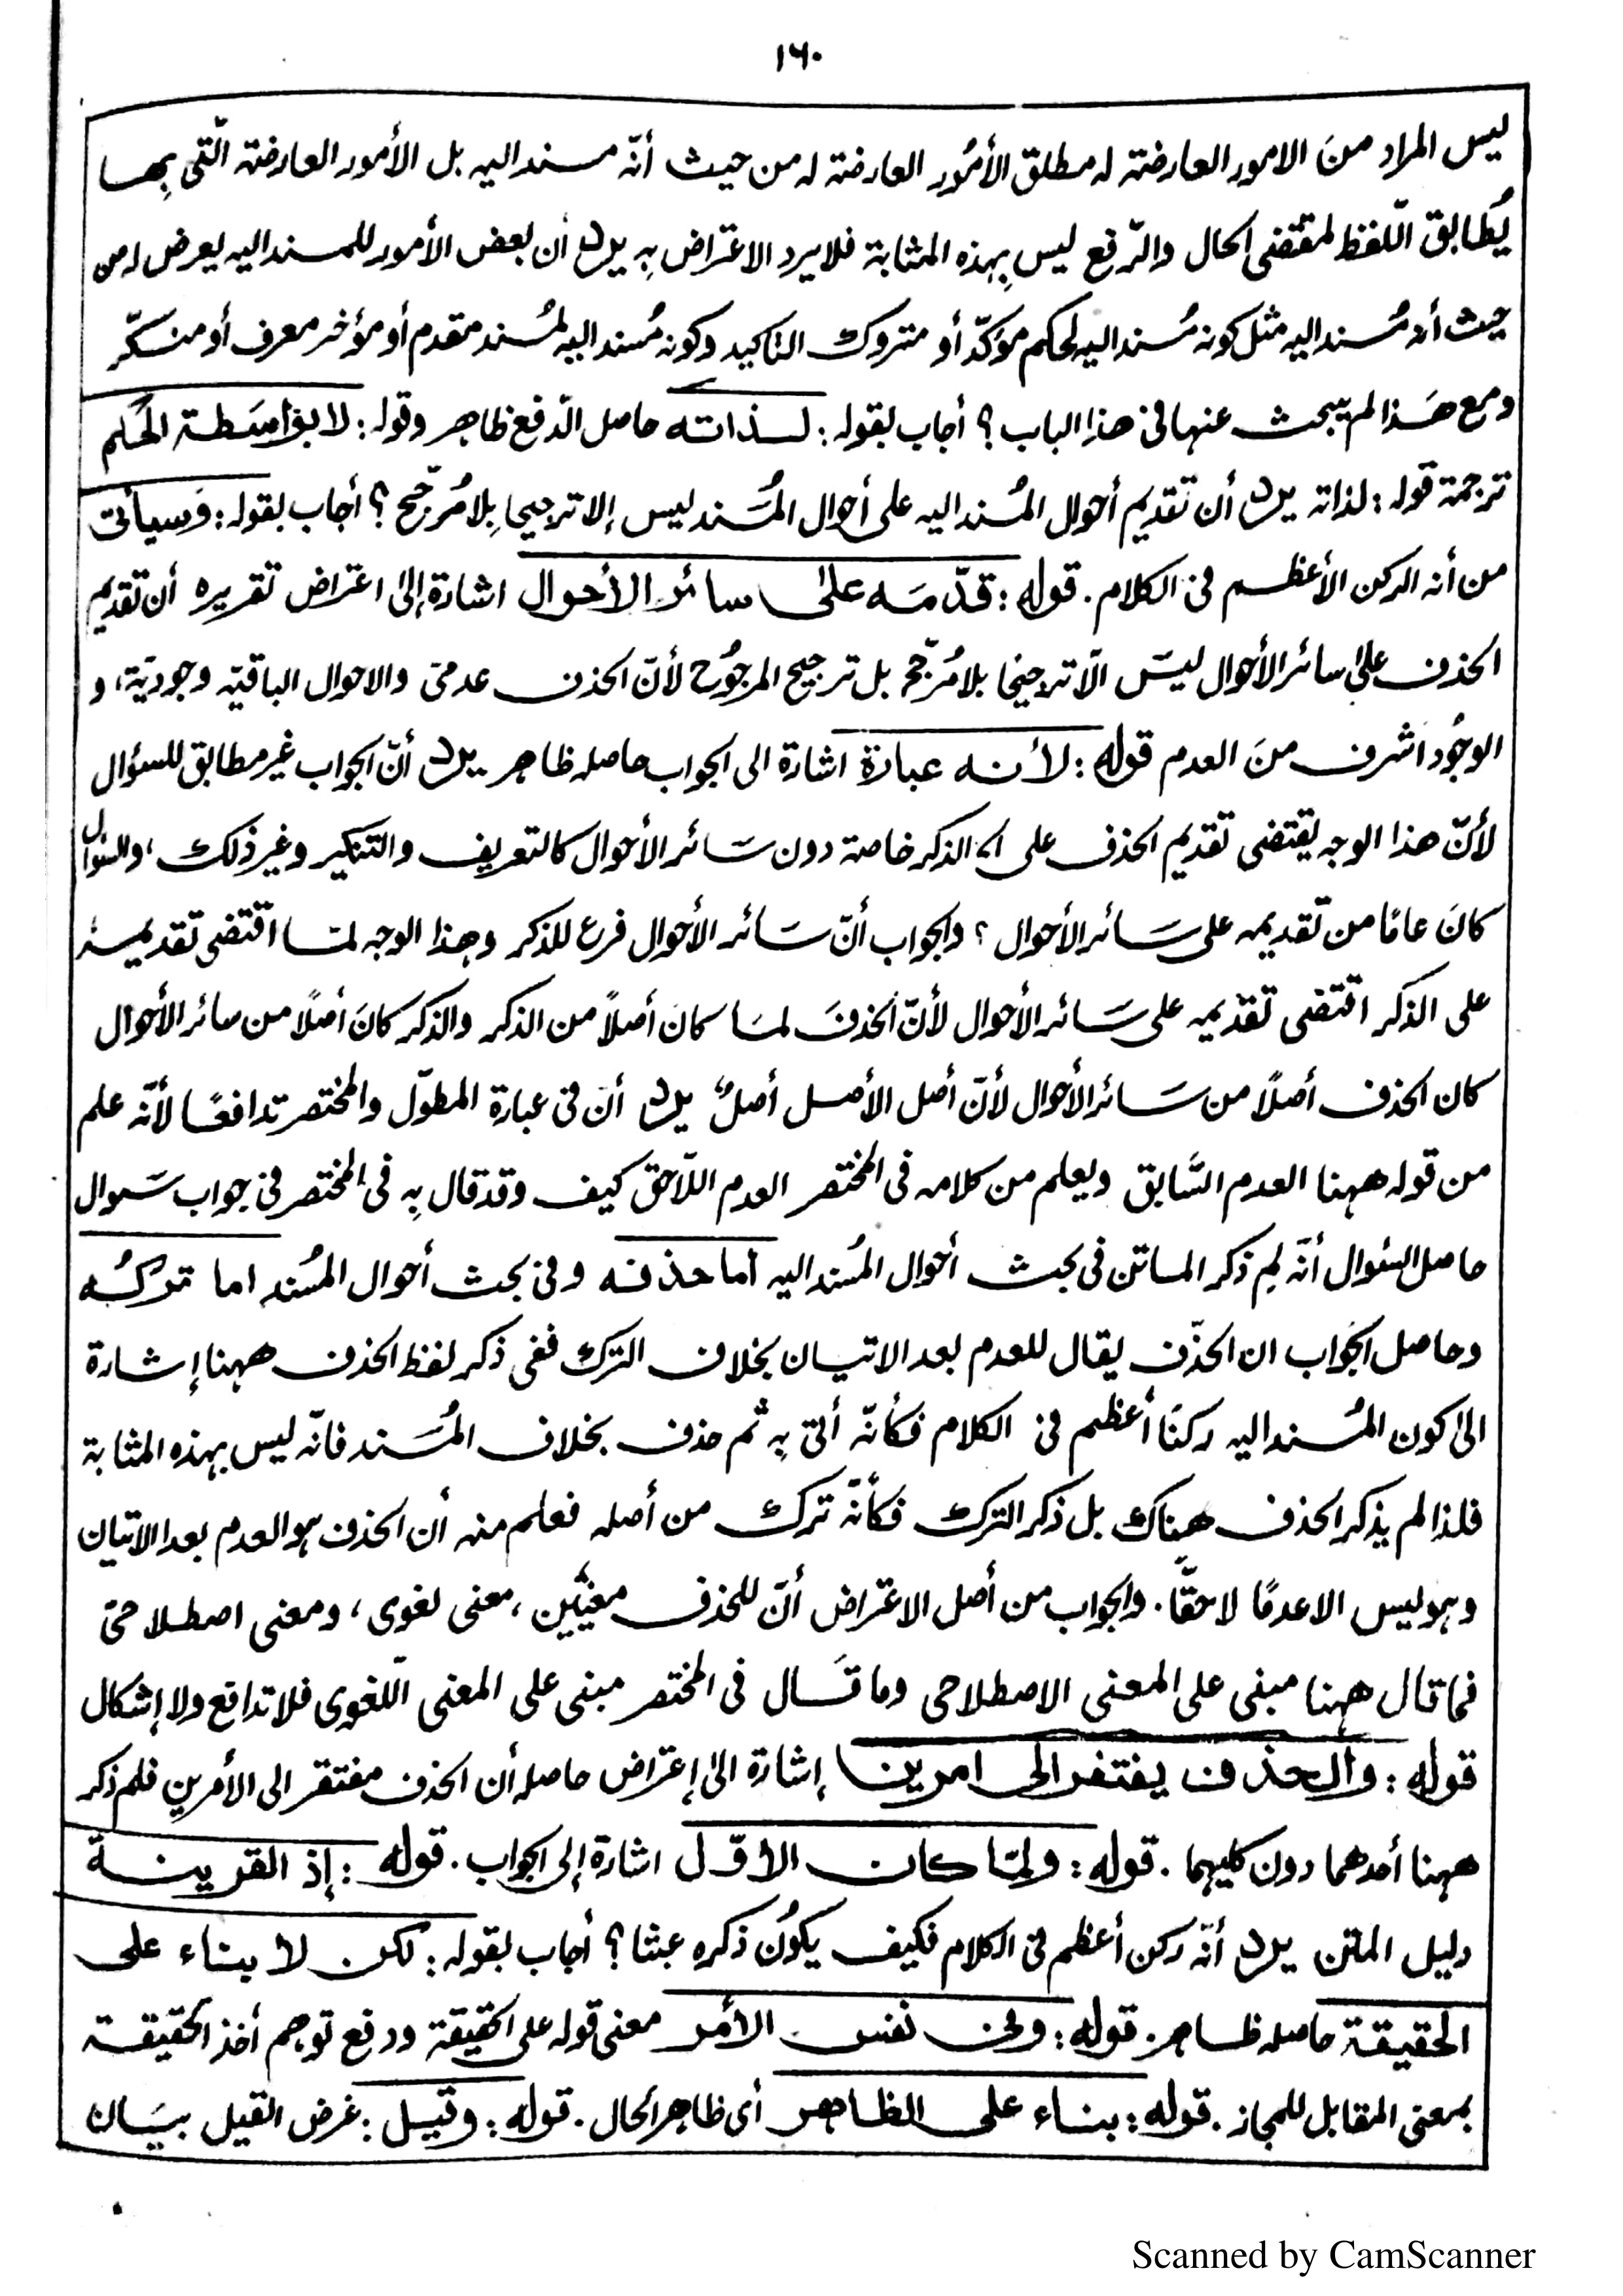 ١٦٠
ليس المراد منَ الامور العارضة له مطلق الأمُور العارضة له من حيث أنّه مسند اليه بل الأمور العارضة الّتى بِها
يُطابق اللّفظ لمقتضى الحال والرّفع ليس بِهذه المثابة فلا يرد الاعتراض بِه يرد أن بعض الأمور للمسند اليه يعرض له من
حيث أنه مُسند اليه مثل كونه مُسندا اليه لحكم مؤكدّ أو متروك التاكيد وكونه مُسندا اليه لمُسند مقدم أو مؤخر معرف أو منكّر
ومع هَذا لم يبحث عنها فى هذا الباب؟ أجاب بقوله: لـذاته حاصل الدّفع ظاهر وقوله: لا بوَاسَطة الحُكم
ترجمة قوله: لذاته يرد أن تقديم أحوال المُسند اليه على أحوال المُسَند ليس إلا ترجيحا بِلا مُرجّح؟ أجاب بقوله: وَسيأتى
من أنه الركن الأعظم فى الكلام. قوله: قدّمَه على سائر الأحوال اشارة إلى اعتراض تقريره أن تقديم
الحذف على سائر الأحوال ليسَ الّا ترجيحًا بلا مُرجّح بل ترجيح المرجُوح لأنّ الحذف عدمىّ والاحوال الباقيّه وجوديّة، و
الوجُود اشرف منَ العدم قوله: لأنه عبارة اشارة الى الجواب حاصله ظاهر يرد أنّ الجواب غير مطابق للسئوال
لأنّ هذا الوجه يقتضى تقديم الحذف على الذكر خاصة دون سَائر الأحوال كالتعريف والتنكير وغير ذلك، والسئوال
كانَ عامًا من تقديمه على سَائر الأحوال؟ والجواب أنّ سَائر الأحوال فرع للذكر وهذا الوجه لمّا اقتضى تقديمه
على الذكر اقتضى تقديمه على سَائر الأحوال لأنّ الحذفَ لمَا كان أصلاً من الذكر والذكر كانَ أصلاً من سائر الأحوال
كان الحذف أصلاً من سَائر الأحوال لأنّ أصل الأصل أصلٌ يرد أن فى عبارة المطوّل والمختصر تدافعًا لأنّه علم
من قوله ههنا العدم السَّابق ويعلم من كلامه فى المختصر العدم اللّاحق كيف وقد قال بِه فى المختصر فى جواب سَوال
حاصل السئوال أنّه لِم ذكر الماتن فى بحث أحوال المُسند اليه اما حذفه وفى بحث أحوال المُسند اما تركُه
وحاصل الجَواب ان الحذف يقال للعدم بعد الاتيان بخلاف الترك ففى ذكر لفظ الحذف ههنا إشارة
الىٰ كون المُسند اليه ركنًا أعظم فى الكلام فكأنّه أتى بِه ثم حذف بخلاف المُسَند فانّه ليس بِهذه المثابة
فلذا لم يذكر الحذف هناك بل ذكر الترك فكأنّه ترك من أصله فعلم منه أن الحذف هو العدم بعد الاتيان
وهو ليس الا عدمًا لاحقًّا. والجواب من أصل الاعتراض أنّ للحذف معنيَين، معنى لغوى، ومعنى اصطلاحىّ
فما قال ههنا مبنى على المعنى الاصطلاحى وما قَال فى المختصر مبنى على المعنى اللّغوى فلا تدافع ولا إشكال
قوله: والحذف يفتقر الى امرين إشارة الىٰ إعتراض حاصله أن الحذف مفتقر الى الأمرين فلم ذكر
ههنا أحدهما دون كليهما. قوله: ولمّا كان الاوّل اشارة إلى الجواب. قوله: إذ القرينة
دليل المتن يرد أنّه ركن أعظم فى الكلام فكيف يكوُن ذكره عبثا؟ أجاب بقوله: لكن لا بناء على
الحقيقة حاصله ظاهر. قوله: وفى نفس الأمر معنى قوله على الحقيقة ودفع توهم أخذ الحقيقة
بمعنى المقابل للمجاز. قوله: بناء على الظاهر أى ظاهر الحال. قوله: وقيل: غرض القيل بيَان
Scanned by CamScanner